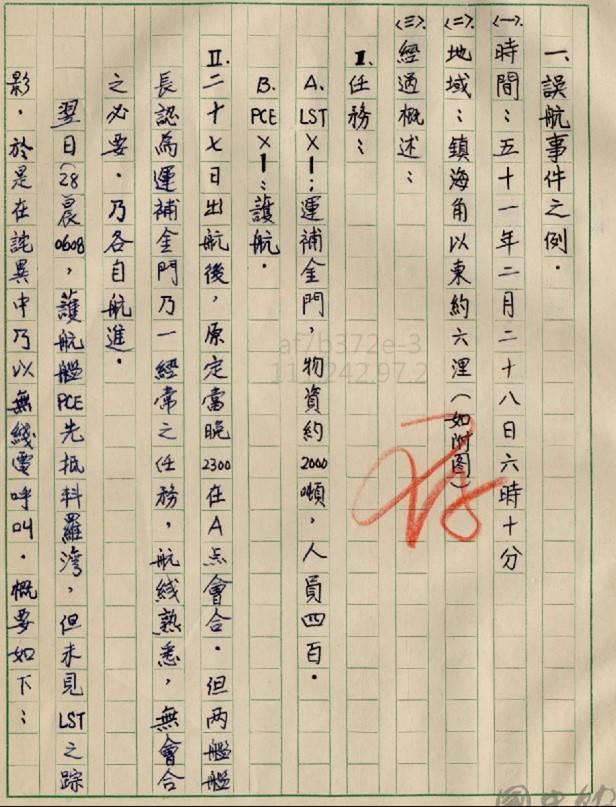 一、誤航事件之例.
<一>時間：五十一年二月二十八日六時十分
<二>地域：鎮海角以東約六浬(如附图)
<三>經過概述：
I.任務：
A.LSTX1；運補金門，物資約2000噸，人員四百.
B.PCEX1：護航.
II.二十七日出航後，原定當晚2300在A点會合.但两艦艦
長認為運補金門乃一經常之任務，航綫熟悉，無會合
之必要.乃各自航進.
翌日(28晨0608，護航艦PCE先抵料羅湾，但未見LST之踪
影.於是在詫異中乃以無綫電呼叫.概要如下：
af7b372e-3